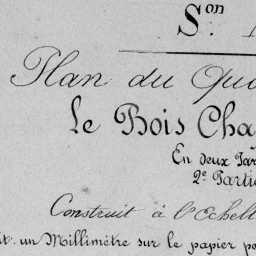 Son
Plan du Qua
Le Bois Cha
En deux Par
2e Partie
Construit à l'Echell
it un Millimètre sur le papier po